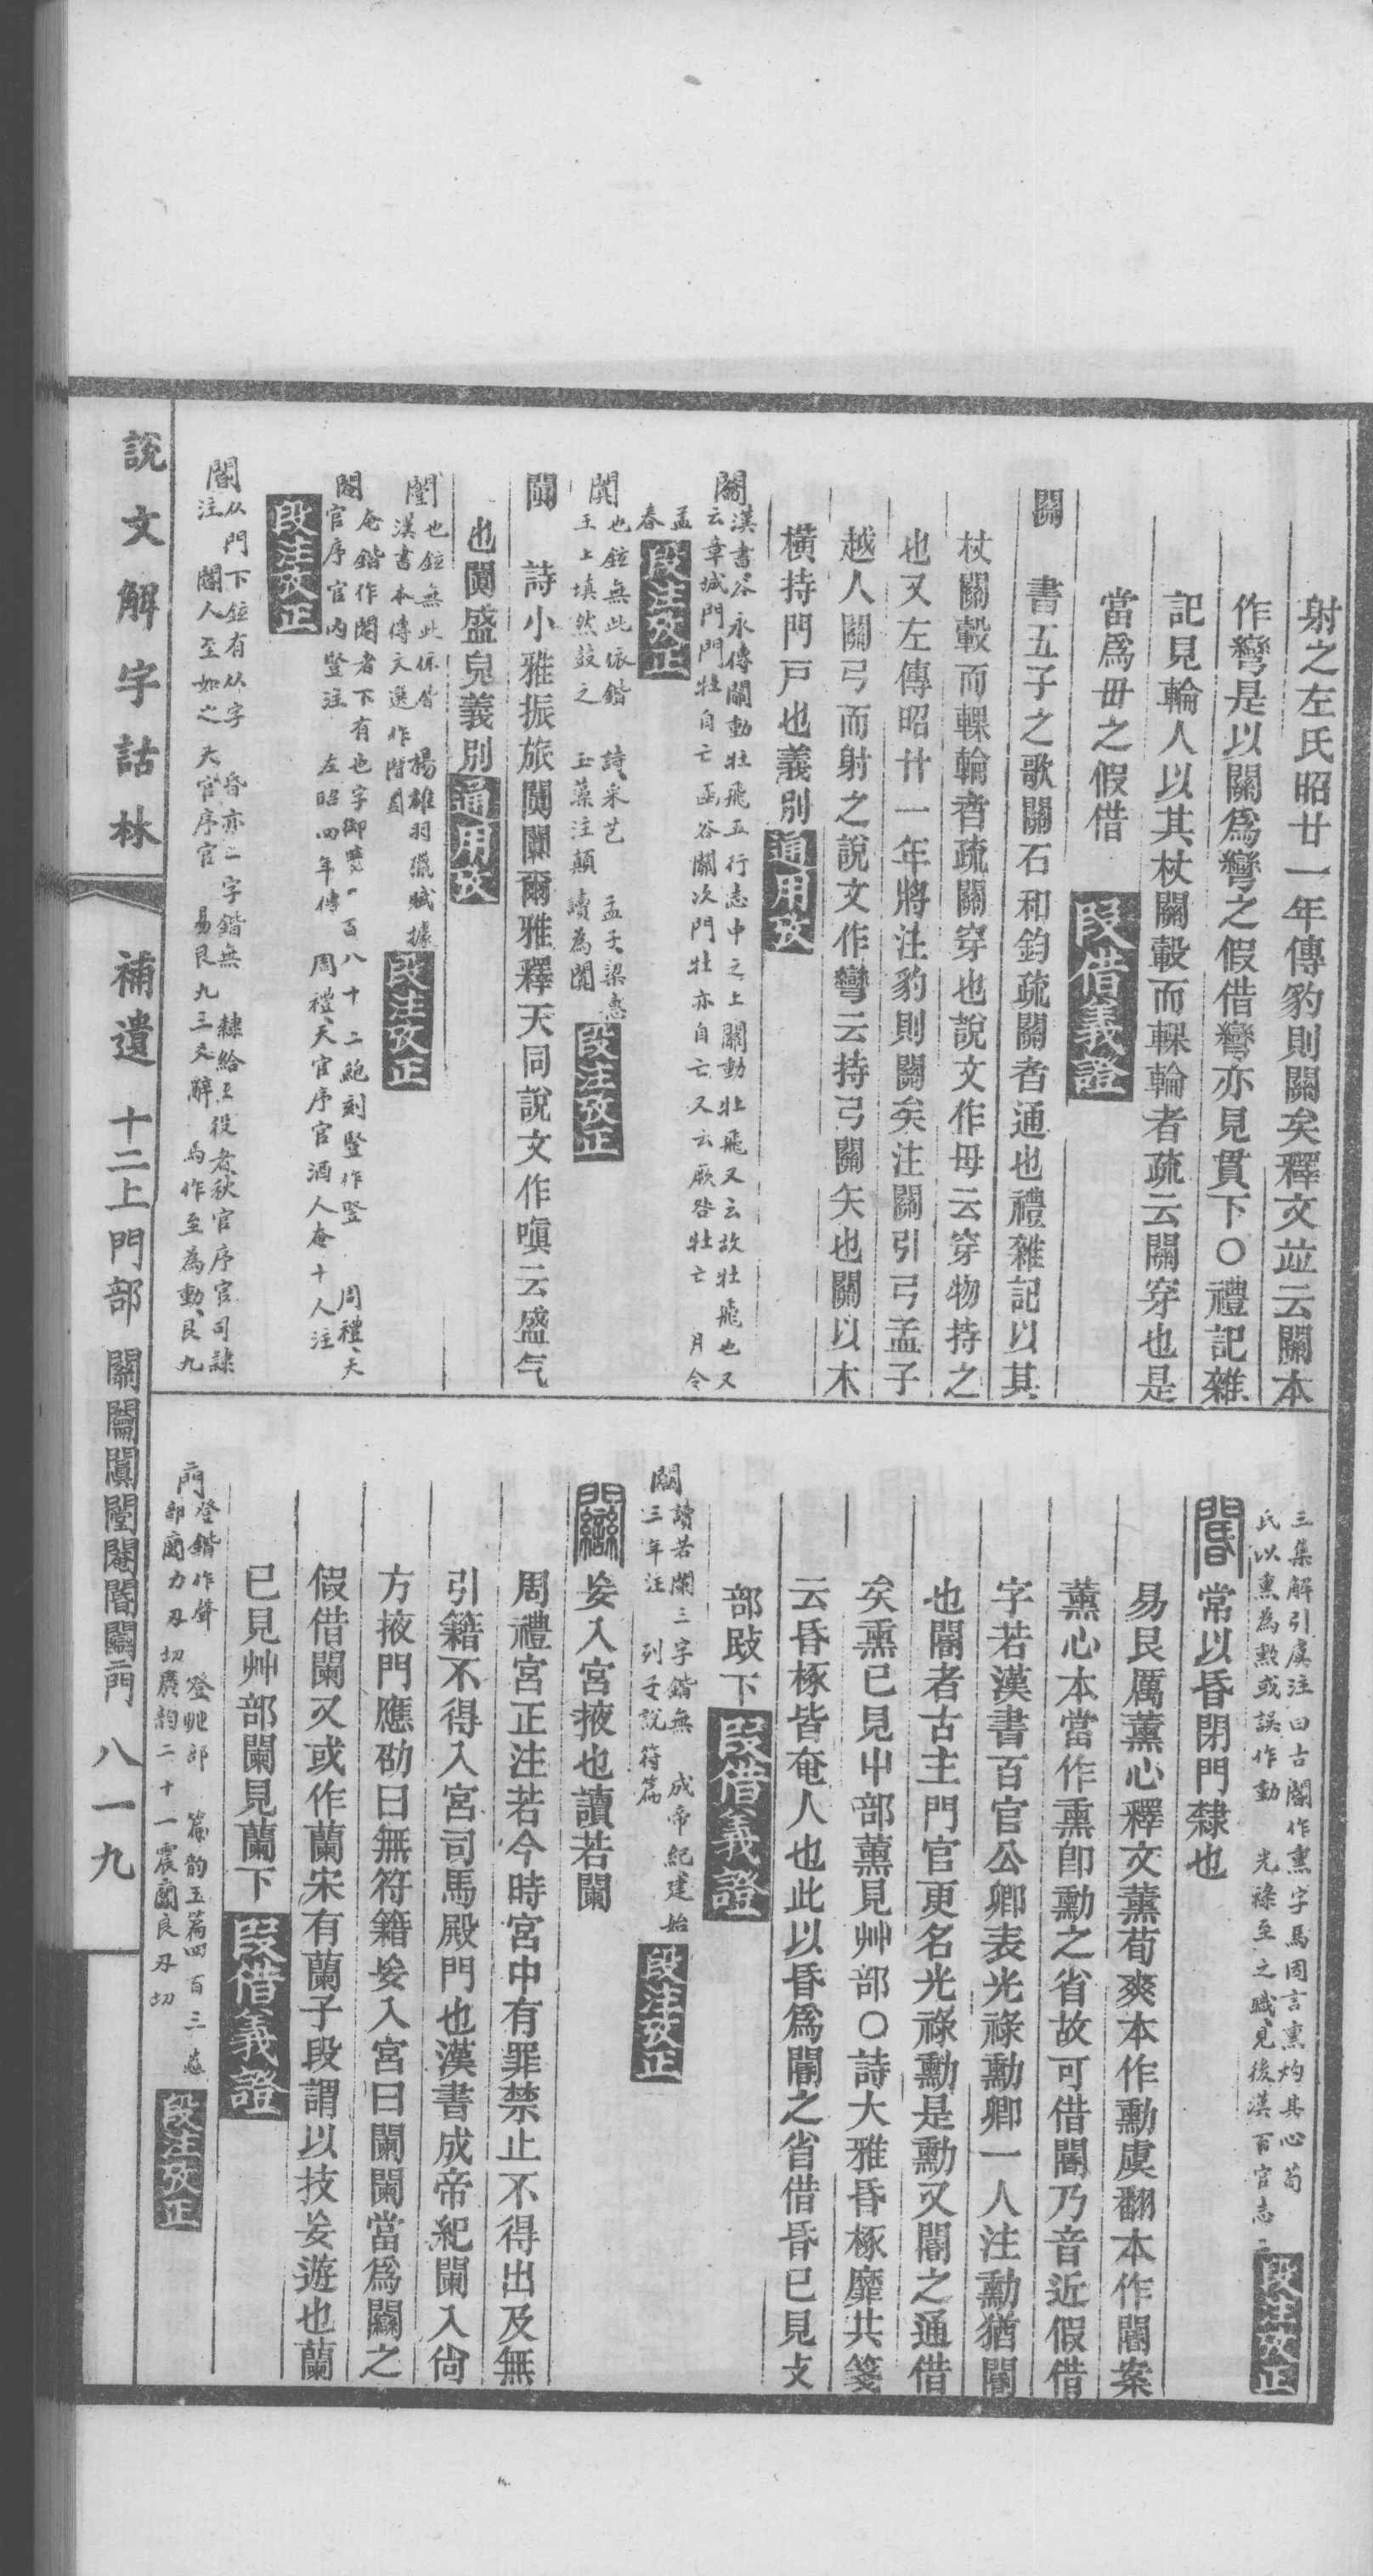 射之左氏昭廿一年傳豹則關矣釋文竝云關本
作彎是以關爲彎之假借彎亦見貫下○禮記雜
記見輪人以其杖關轂而輠輪者疏云關穿也是
當爲毌之假借
段借義證
關　書五子之歌關石和鈞疏關者通也禮雜記以其
杖關轂而輠輪者疏關穿也說文作毌云穿物持之
也又左傳昭廿一年將注豹則關矣注關引弓孟子
越人關弓而射之說文作彎云持弓關矢也關以木
橫持門戸也義別
通用攷
闟
漢書谷永傳關動牡飛五行志中之上關動牡飛又云故牡飛也又
云章城門門牡自亡函谷關次門牡亦自亡又云厥咎牡亡　月令
孟
春
段注攷正
闐
也鉉無此依鍇　詩采芑　孟子梁惠
王上填然鼓之　玉藻注顛讀為闐
段注攷正
闐　詩小雅振旅闐闐爾雅釋天同說文作嗔云盛气
也闐盛皃義別
通用攷
闛
也鉉無此依偕　楊雄羽獵賦據
漢書本傳文選作閶
段注攷正
閹
奄鍇作閹者下有也字御覽四百八十二鮑刻豎作竪　周禮天
官序官內豎注　左昭四年傳　周禮天官序官酒人奄十人注
段注攷正
閽
从門下鉉有从字　昏亦二字鍇無　隸給王役者秋官序官司隸
注　閽人至如之　天官序官　易艮九三爻辭　馬作至為動艮九
三集解引虞注曰古閽作熏字馬因言熏灼其心荀
氏以熏為勲或誤作動　光祿至之職見後漢百官志二
段注攷正
閽常以昏閉門隸也
易艮厲薰心釋文薰荀爽本作勳虞翻本作閽案
薰心本當作熏卽勳之省故可借閽乃音近假借
字若漢書百官公卿表光祿勳卿一人注勳猶閽
也閽者古主門官更名光祿勳是勳又閽之通借
矣熏已見屮部薰見艸部○詩大雅昏椓靡共箋
云昏椓皆奄人也此以昏爲閽之省借昏已見攴
部敯下
段借義證
闌
讀若闌三字鍇無　成帝紀建始
三年注　列子說符篇
段注攷正
䜌妄入宮掖也讀若闌
周禮宮正注若今時宮中有罪禁止不得出及無
引籍不得入宮司馬殿門也漢書成帝紀闌入尙
方掖門應劭曰無符籍妄入宮曰闌闌當爲䦨之
假借闌又或作蘭宋有蘭子段謂以技妄遊也蘭
已見艸部闌見蘭下
段借義證
䦎
登鍇作聲　登䟆部　篇韵玉篇四百三
部䦎力刃切廣韵二十一震䦎良刃切
段注攷正
說文解字詁林　補遺　十二上門部　關闟闐闛閹閽䦨䦎　八一九